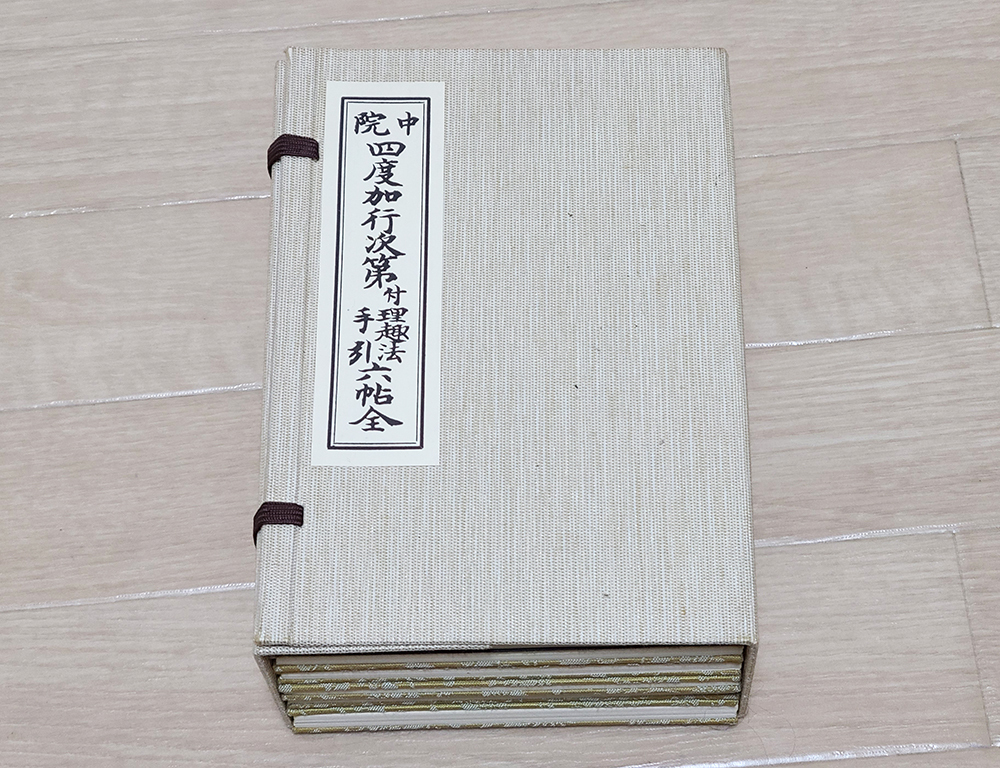 中院
四度加行次第
付
理趣法
手引
六帖全